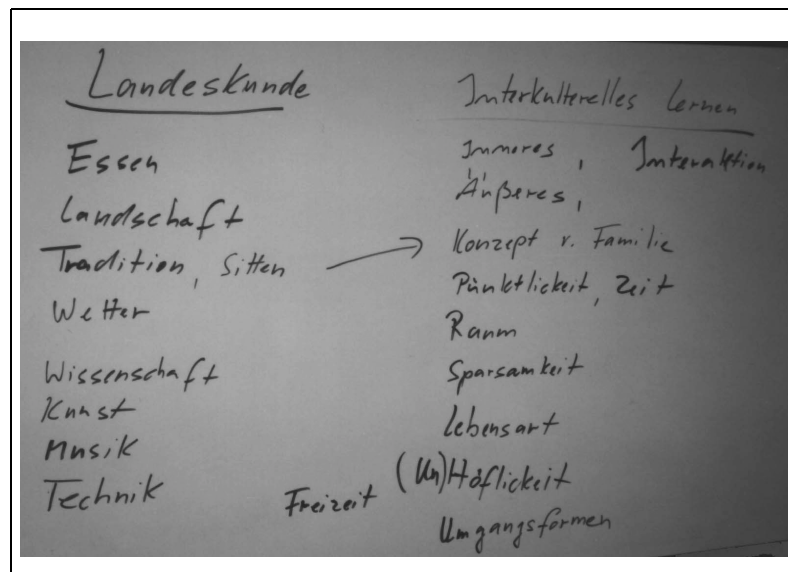 Landeskunde
Essen
Landschaft
Tradition, Sitten →
Wetter
Wissenschaft
Kunst
Musik
Technik
Freizeit
Interkulterelles Lernen
Inneres, Interaktion
Äußeres,
Konzept v. Familie
Pünktlickeit, Zeit
Raum
Sparsamkeit
Lebensart
(Un)Höflickeit
Umgangsformen